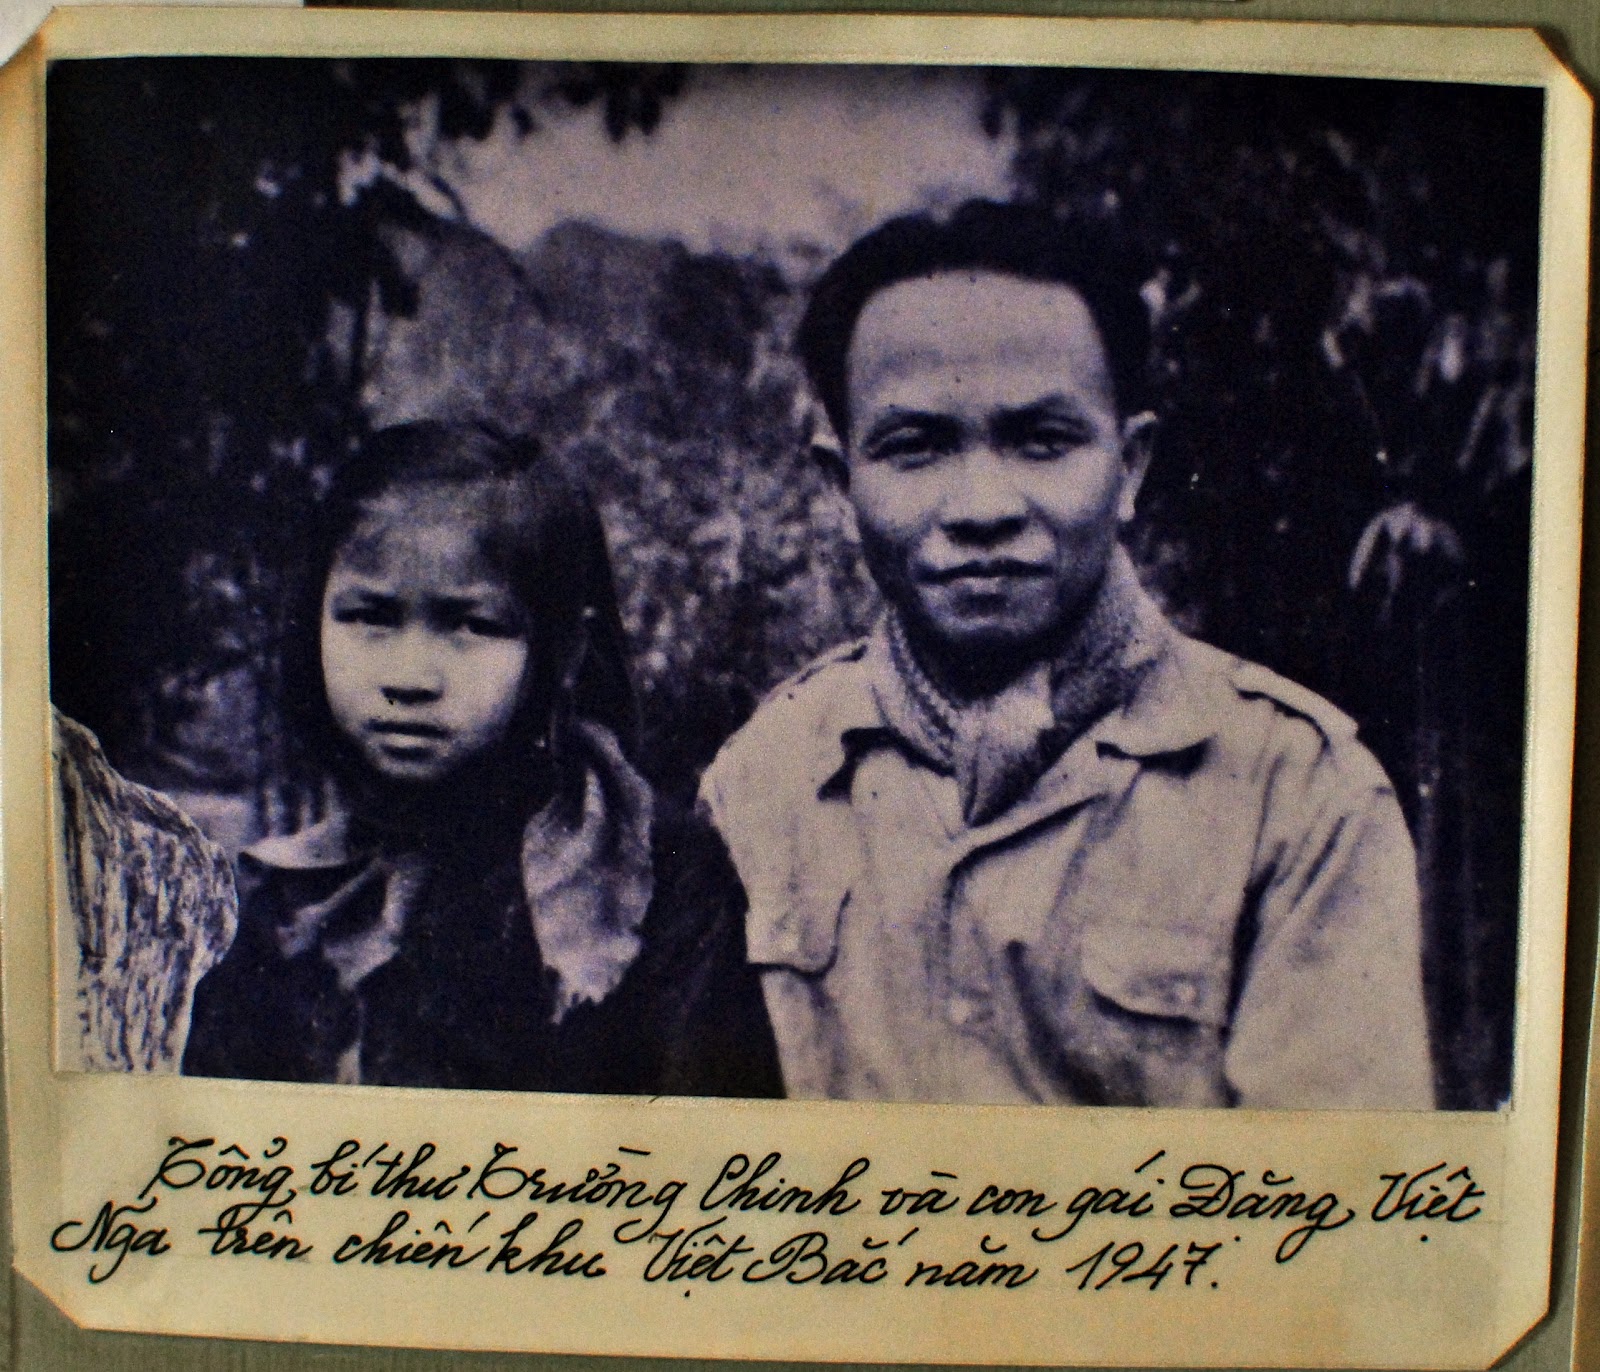 Tổng bí thư Trường Chinh và con gái Đặng Việt
Nga trên chiến khu Việt Bắc năm 1947.